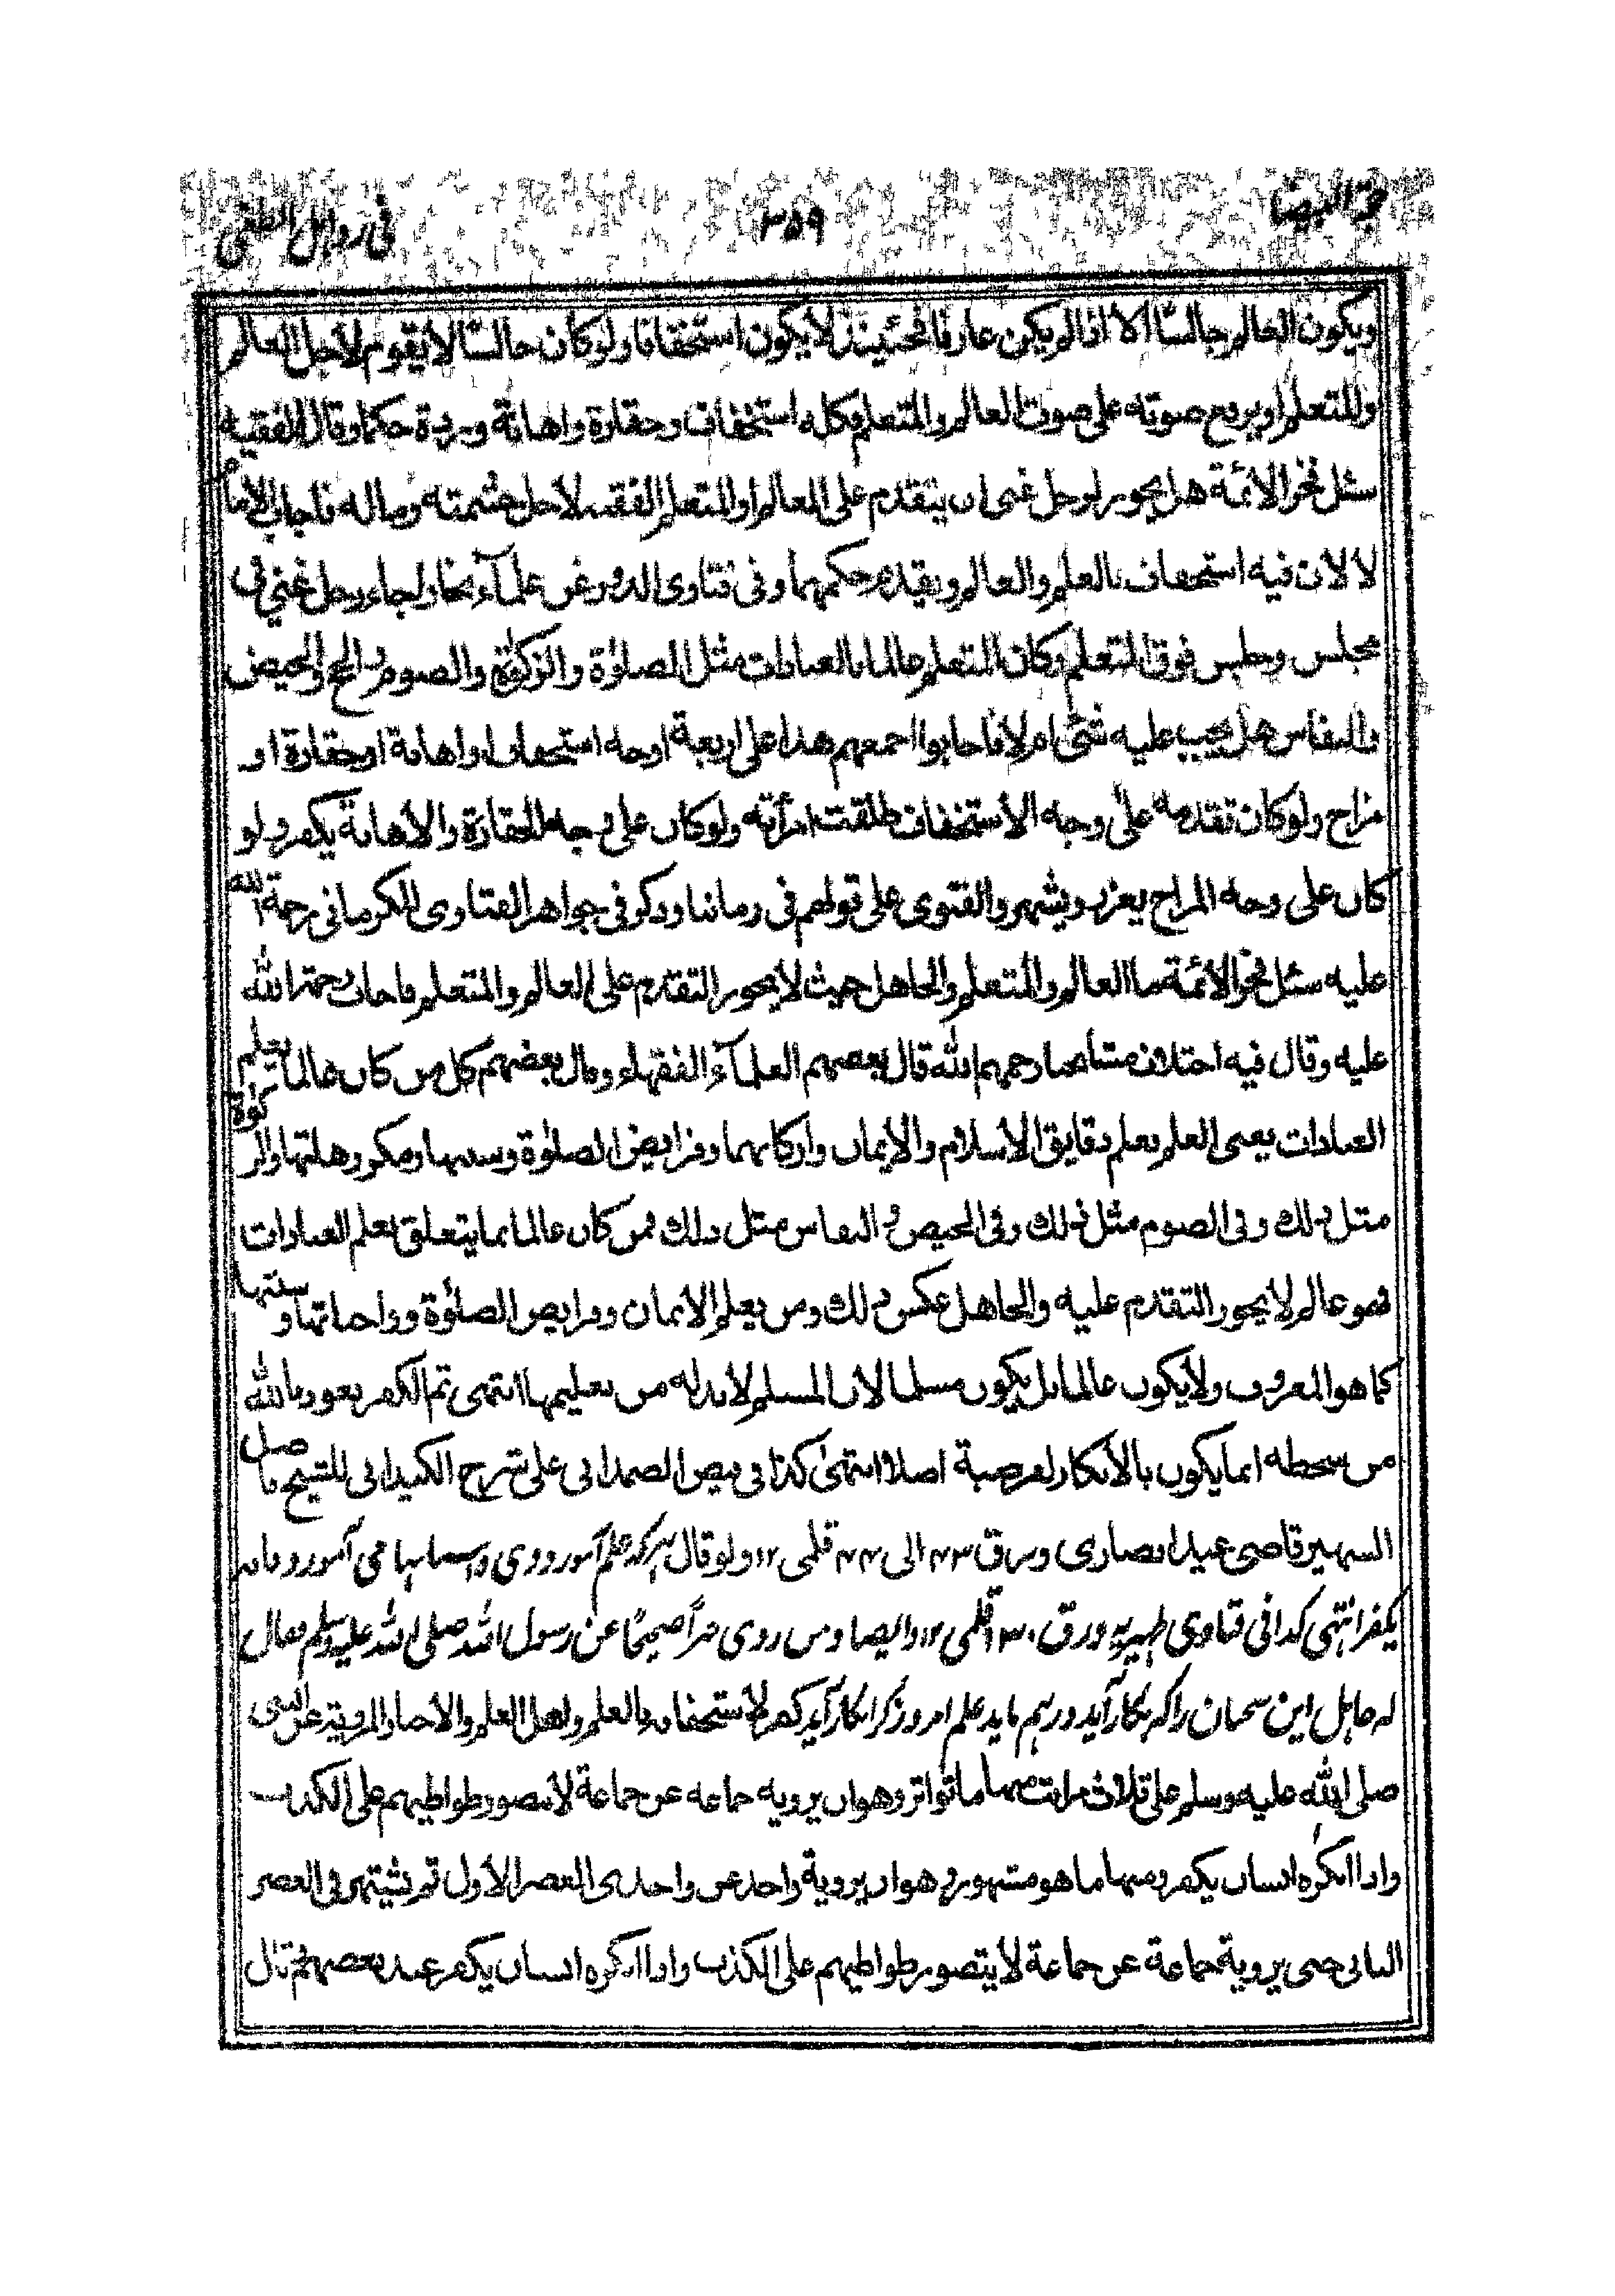 ٣٥٩
ويكون العالم جالسا الا اذا لم يكن عارفا فحينئذ لا يكون استخفافا ولو كان جالسا لا يقوم لاجل العالم
وللمتعلم او يرفع صوته على صوت العالم والمتعلم فكله استخفاف وحقارة واهانة وردة حكما وقال الفقيه
سئل فخر الائمة هل يجوز لرجل غنى ان يتقدم على العالم او المتعلم الفقيه لاجل حشمته وماله فاجاب الامام
لا لان فيه استخفاف بالعلم والعالم وبقدر حكمهما وفى فتاوى الدرر عن علمآء بخارا جاء رجل غني في
مجلس وجلس فوق المتعلم وكان المتعلم عالما بالعبادات مثل الصلوٰة والزكوٰة والصوم والحج والحيض
والنفاس هل يجب عليه شئ ام لا فاجابوا اجمعهم هذا على اربعة اوجه استخفاف او اهانة او حقارة او
مزاح ولو كان تقدمه على وجه الاستخفاف طلقت امرأته ولو كان على وجه الحقارة والاهانة يكفر ولو
كان على وجه المزاح يعزر ويشهر والفتوى على قولهم فى زماننا وذكر فى جواهر الفتاوى للكرمانى رحمة الله
عليه سئل فخر الائمة ما العالم والمتعلم والجاهل حيث لا يجوز التقدم على العالم والمتعلم فاجاب رحمة الله
عليه وقال فيه اختلاف مشايخنا رحمهم الله قال بعضهم العلمآء الفقهاء وقال بعضهم كل من كان عالما بعلم
العبادات يعنى العلم بعلم دقايق الاسلام والايمان واركانهما وفرايض الصلوٰة وسننها ومكروهاتها والزكوٰة
مثل ذلك وفى الصوم مثل ذلك وفى الحيض والنفاس مثل ذلك فمن كان عالما بما يتعلق بعلم العبادات
فهو عالم لا يجوز التقدم عليه والجاهل عكس ذلك ومن يعلم الايمان وفرايض الصلوٰة وواجباتها وسننها
كما هو المعروف ولا يكون عالما بل يكون مسلما لان المسلم لا بد له من تعليمها انتهى ثم الكفر نعوذ بالله
من سخطه انما يكون بالانكار لفرضية اصلا انتهىٰ كذا فى فيض الصمدانى على شرح الكيدانى للشيخ فاضل
الشهير قاضى عبيد انصارى ورق ٤٣ الى ٤٤ قلمى ١٢ ولو قال ہر کہ علم آموزد روى
يكفر انتهى كذا فى فتاوى ظهيريه ورق ١٣٠ قلمى ١٢ وايضا ومن روى خبرًا صحيحًا عن رسول الله صلى الله عليه وسلم فقال
له جاہل این سخنان را کہ بکار آید درہم باید علم امروز کرا بکار آید کفر لاستخفافه بالعلم ولاهل العلم والاخبار المروية عن النبى
صلى الله عليه وسلم على ثلاث مراتب منها ما تواتر وهو ان يرويه جماعه عن جماعة لا يتصور طواطيهم على الكذب
واذا انكره انسان يكفر ومنها ما هو مشهور وهو ان يروية واحد عن واحد فى العصر الاول ثم يشتهر فى العصر
الثانى حتى يروية جماعة عن جماعة لا يتصور طواطيهم على الكذب واذا انكره انسان يكفر عند بعضهم ثم قال